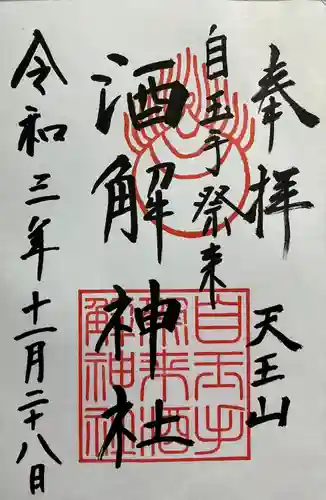 奉拝
天王山
自玉手祭来
酒解神社
令和三年十一月二十八日
自玉手
祭来酒
解神社